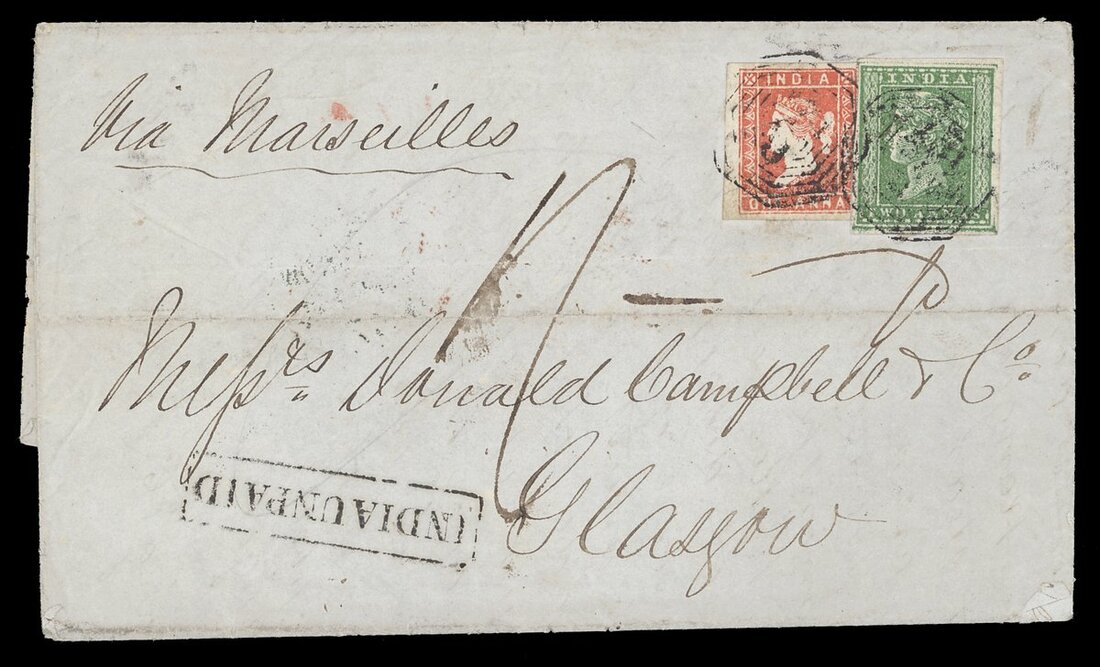 Via Marseilles
INDIA
ONE ANNA
INDIA
TWO ANNAS
Messrs Donald Campbell & Co.
Glasgow
INDIA UNPAID